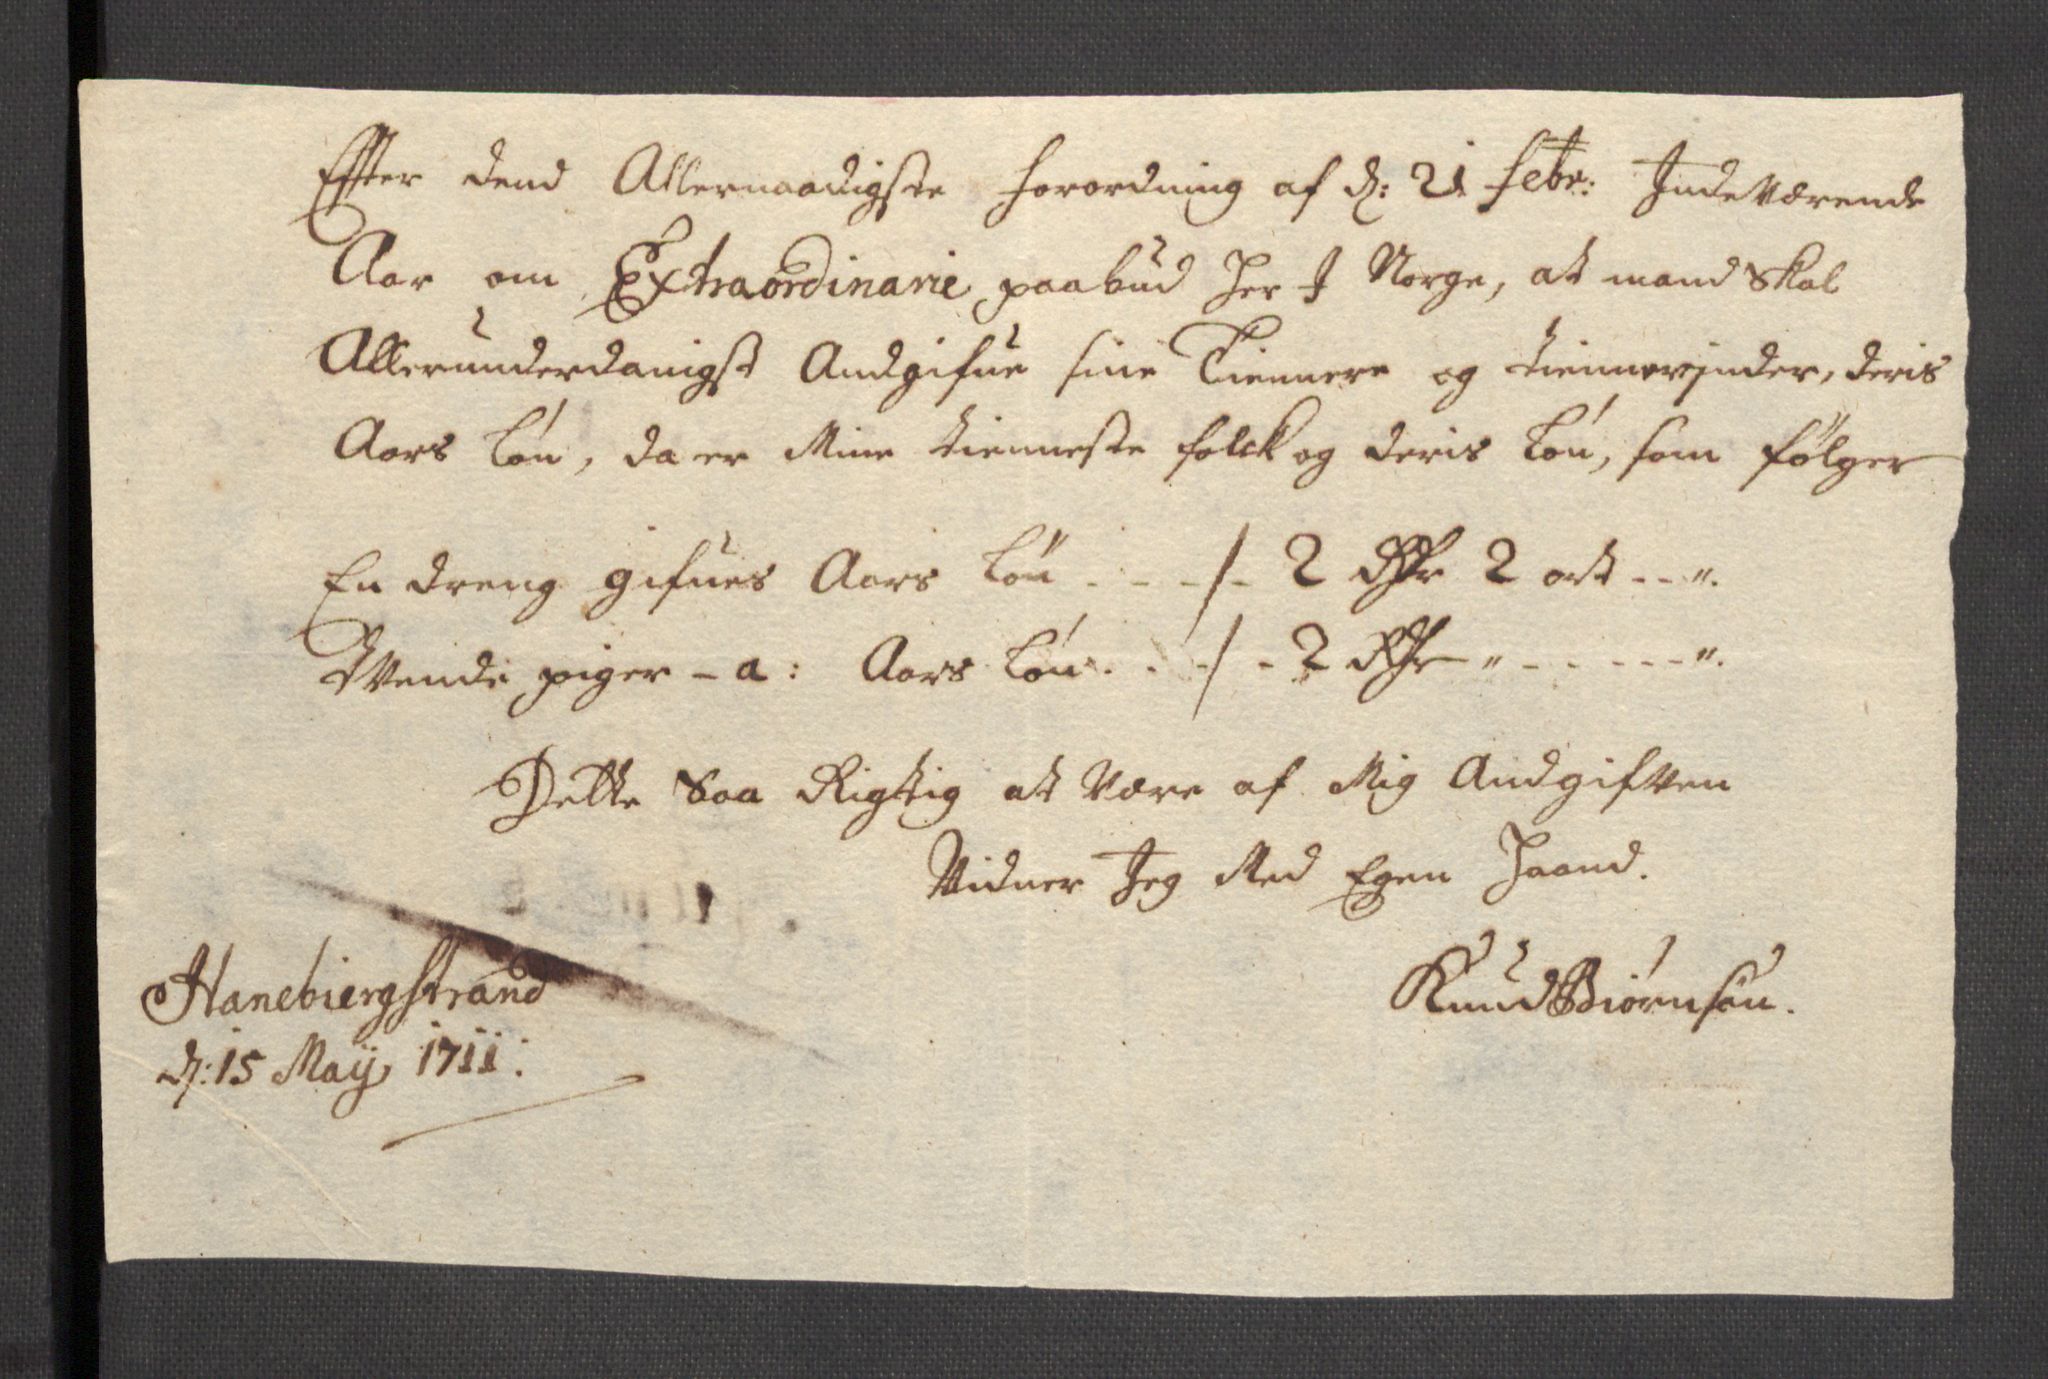 Effter dend Allernaadigste forordning af d: 21 febr: Indeværende
Aar om Extraordinarie paabud her I Norge, at mand skal
Allerunderdanigst Andgifue sine Tiennere og tiennerinder, deris
Aars løn, da er Mine tienneste folck og deris løn, som følger
En dreng gifues Aars løn - - - /- 2 Rdr 2 ort - - ".
Tvende piger - a: Aars løn - - /- 2 Rdr " - - - - - ".
Dette saa Rigtig at være af Mig Andgifven
Vidner Jeg Med Egen Haand.
Knud Biørnsøn.
Hanebiergstrand
d: 15 Maij 1711: